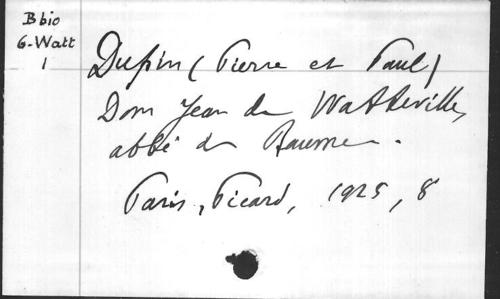 Bbio
6-Watt
1
Dupin (Pierre et Paul)
Dom Jean de Watteville,
abbé de Baume.
Paris, Picard, 1925, 8